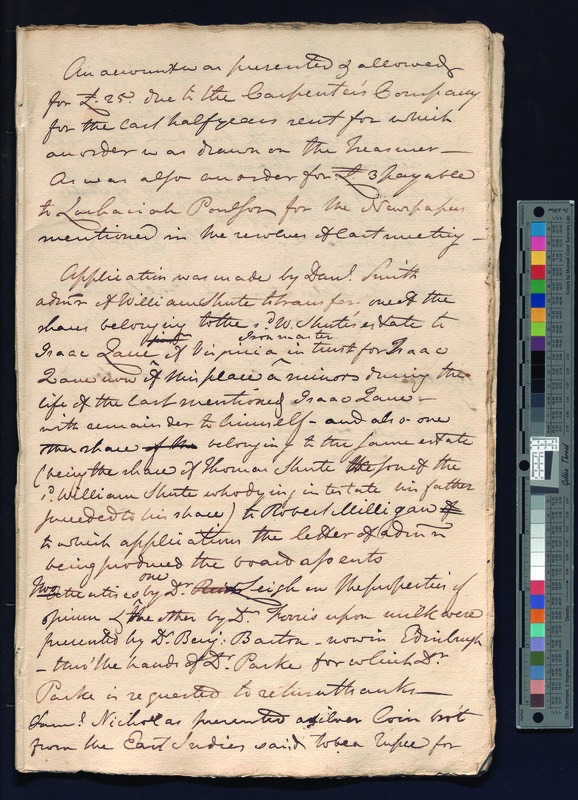 An account was presented & allowed
for £.25. due to the Carpenter's Company
for the last half years rent for which
an order was drawn on the Treasurer —
As was also an order for £3 payable
to Zachariah Poulson for the Newspapers
mentioned in the resolves of last meeting —
Application was made by Danl. Smith
admr. of William Shute to transfer one of the
shares belonging to the sd. W. Shute's estate to
Isaac Zane of Virginia Ironmaster in trust for Isaac
Zane now of this place a minor during the
life of the last mentioned Isaac Zane —
with remainder to himself — and also one
other share of the belonging to the same estate
(being the share of Thomas Shute the son of the
sd. William Shute who dying intestate his father
succeeded to his share) to Robert Milligan of
to which applications the letter of admn.
being produced the board assents
Two treatises one by Dr. Leigh on the properties of
opium & the other by Dr. Ferris upon milk were
presented by Dr. Benj: Barton — now in Edinburgh
— thro' the hands of Dr. Parke for which Dr.
Parke is requested to return thanks —
Saml. Nicholas presented a silver Coin bro't
from the East Indies said to be a Rupee for